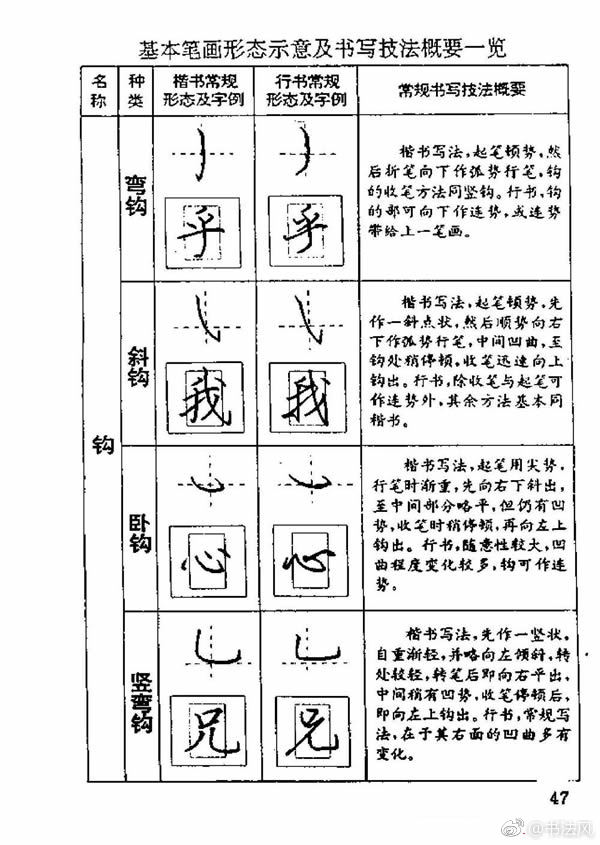 基本笔画形态示意及书写技法概要一览
名称
种类
楷书常规
形态及字例
行书常规
形态及字例
常规书写技法概要
钩
弯钩
乎
乎
楷书写法,起笔顿势,然
后折笔向下作弧势行笔,钩
的收笔方法同竖钩。行书,钩
的部可向下作连势,或连势
带给上一笔画。
斜钩
我
我
楷书写法,起笔顿势,先
作一斜点状,然后顺势向右
下作弧势行笔,中间凹曲,至
钩处稍停顿,收笔迅速向上
钩出。行书,除收笔与起笔可
作连势外,其余方法基本同
楷书。
卧钩
心
心
楷书写法,起笔用尖势,
行笔时渐重,先向右下斜出,
至中间部分略平,但仍有凹
势,收笔时稍停顿,再向左上
钩出。行书,随意性较大,凹
曲程度变化较多,钩可作连
势。
竖弯钩
兄
兄
楷书写法,先作一竖状,
自重渐轻,并略向左倾斜,转
处较轻,转笔后即向右平出,
中间稍有凹势,收笔停顿后,
即向左上钩出。行书,常规写
法,在于其右面的凹曲多有
变化。
47
@书法风